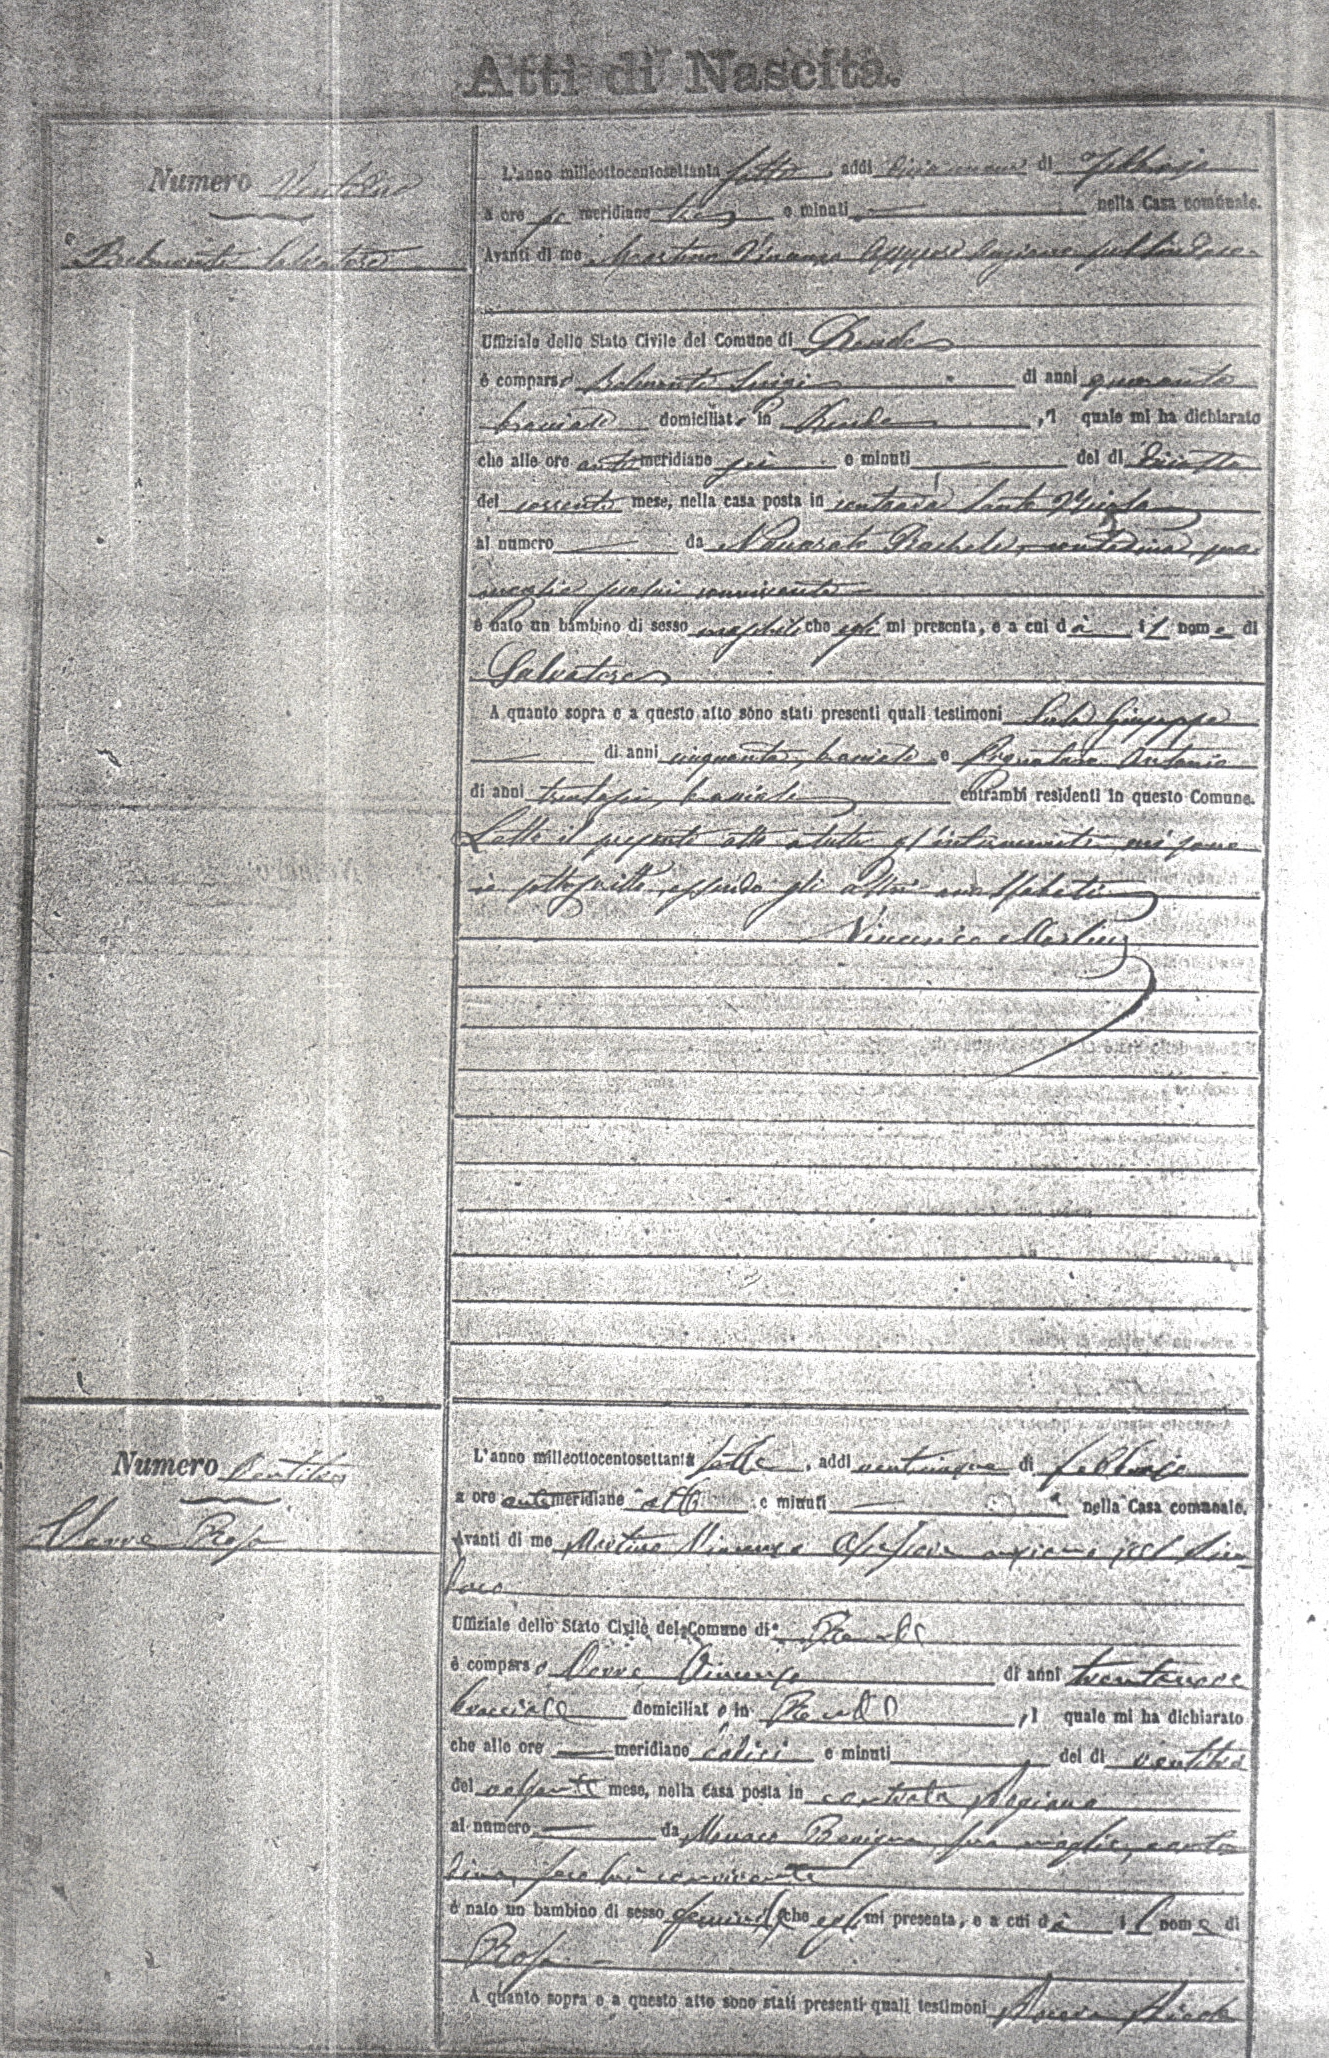 Atti di Nascita.
Numero Ventidue
Belmonte Salvatore
L'anno milleottocentosettanta sette, addì diecinove di Febbraio
a ore po meridiane tre e minuti nella Casa comunale.
Avanti di me Martino Vincenzo Assessore anziano pel Sindaco
Uffiziale dello Stato Civile del Comune di Rende
è comparso Belmonte Luigi di anni quaranta
bracciale domiciliato in Rende, il quale mi ha dichiarato
che alle ore antimeridiane sei e minuti del dì
del corrente mese, nella casa posta in contrada Santa
al numero da Rachele contadina sua
moglie seco lui convivente
è nato un bambino di sesso maschile che egli mi presenta, e a cui dà il nome di
Salvatore
A quanto sopra e a questo atto sono stati presenti quali testimoni Giuseppe
di anni cinquanta, bracciale e Antonio
di anni trentasei, bracciale entrambi residenti in questo Comune.
Letto il presente atto a tutti gl'intervenuti, mi sono
io sottoscritto, essendo gli altri analfabeti
Vincenzo Martino
Numero Ventitre
Rosa
L'anno milleottocentosettanta sette, addì venticinque di febbraio
a ore antimeridiane otto e minuti nella Casa comunale.
Avanti di me Martino Vincenzo Assessore anziano pel Sin
daco
Uffiziale dello Stato Civile del Comune di Rende
è comparso Vincenzo di anni trentanove
bracciale domiciliato in Rende, il quale mi ha dichiarato
che alle ore meridiane dodici e minuti del dì ventitre
del volgente mese, nella casa posta in contrada
al numero da Monaco Benigna, sua moglie, conta
dina, seco lui convivente
è nato un bambino di sesso feminile che egli mi presenta, e a cui dà il nome di
Rosa
A quanto sopra e a questo atto sono stati presenti quali testimoni Nicola